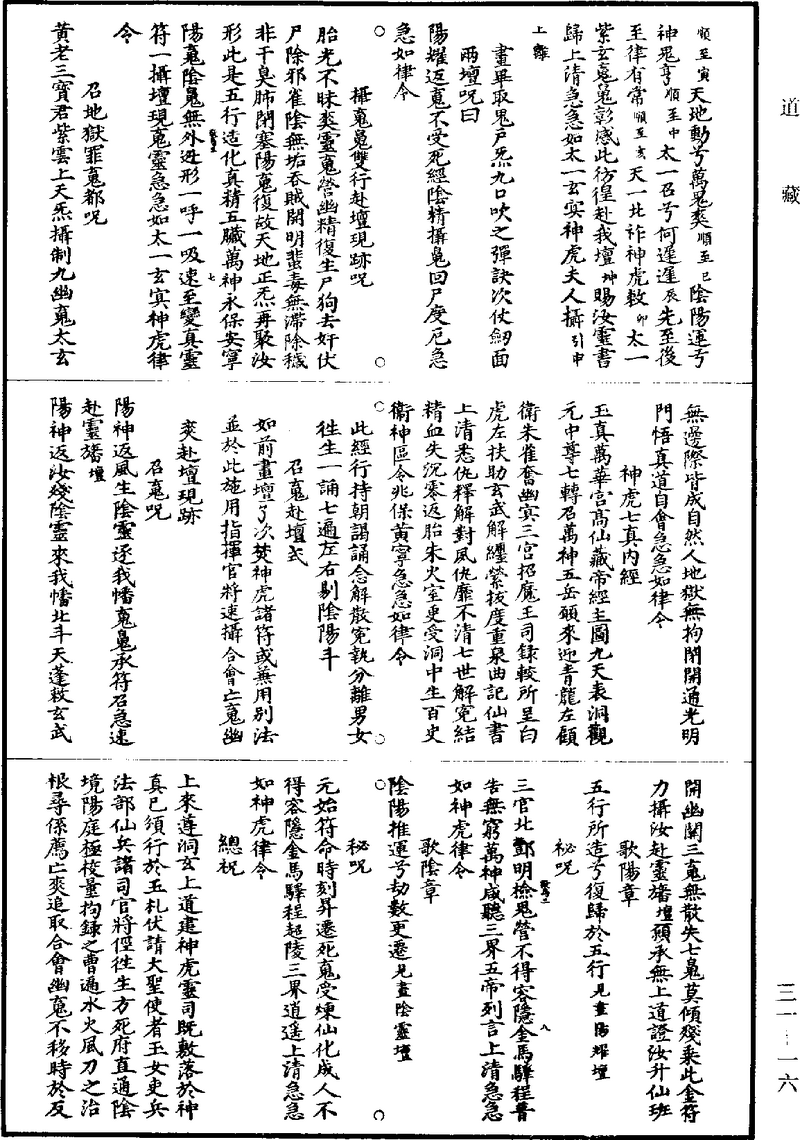 道藏
順至寅天地動兮萬鬼奕順至巳陰陽運兮
神鬼亨順至申太一召兮何遲遲辰先至後
至律有常順至亥天一北祚神虎敕卯太一
紫玄䰟鬼彰感此彷徨赴我壇坤賜汝靈書
歸上清急急如太一玄冥神虎夫人攝引中
上離
畫畢取鬼戶炁九口吹之彈訣次仗劒面
兩壇呪曰
陽耀返䰟不受死經陰精攝鬼回尸度厄急
急如律令
攝䰟鬼雙行赴壇現跡呪
胎光不昧爽靈䰟營幽精復生尸狗去奸伏
尸除邪雀陰無垢吞賊開明蜚毒無滯除穢
非干臭肺閉塞陽䰟復故天地正炁再聚汝
形此是五行造化真精五臟萬神永保安寧
陽䰟陰鬼無外逃形一呼一吸速至變真靈
符一攝壇現䰟靈急急如太一玄冥神虎律
令
召地獄罪䰟都呪
黄老三寶君紫雲上天炁攝制九幽䰟太玄
無邊際皆成自然人地獄無拘閉開通光明
門悟真道自會急急如律令
神虎七真內經
玉真萬華宮高仙藏帝經主圖九天表洞觀
元中尊七轉召萬神五岳頫來迎青龍左顧
衛朱雀奮幽冥三官招魔王司錄較所呈白
虎左扶助玄武解纏縈拔度重泉曲記仙書
上清悉仇釋解對夙仇靡不清七世解寃結
精血失沉零返胎朱火室更受洞中生百史
衞神區令兆保黄寧急急如律令
此經行持朝謁誦念解散寃執分離男女
徃生一誦七遍左右剔陰陽斗
召䰟赴壇式
如前畫壇了次焚神虎諸符或無用別法
並於此施用指揮官將速攝合會亡䰟幽
爽赴壇現跡
召䰟呪
陽神返風生陰靈逐我幡䰟鬼承符召急速
赴靈旛壇
陽神返汝殘陰靈來我幡北斗天蓬敕玄武
開幽關三䰟無散失七鬼莫傾殘乘此金符
力攝汝赴靈旛壇頫承無上道證汝升仙班
歌陽章
五行所造兮復歸於五行見畫陽耀壇
祕呪
三官北酆明檢鬼營不得容隱金馬驛程普
告無窮萬神咸聽三界五帝列言上清急急
如神虎律令
歌陰章
陰陽推運兮劫數更遷見畫陰靈壇
祕呪
元始符命時刻昇遷死䰟受煉仙化成人不
得容隱金馬驛程超陵三界逍遥上清急急
如神虎律令
總祝
上來遵洞玄上道建神虎靈司既敷落於神
真已須行於玉札伏請大聖使者玉女吏兵
法部仙兵諸司官將徑徃生方死府直通陰
境陽庭極校量拘録之曹遍水火風刀之治
根尋係薦亡爽追取合會幽䰟不移時於反
三一-一六